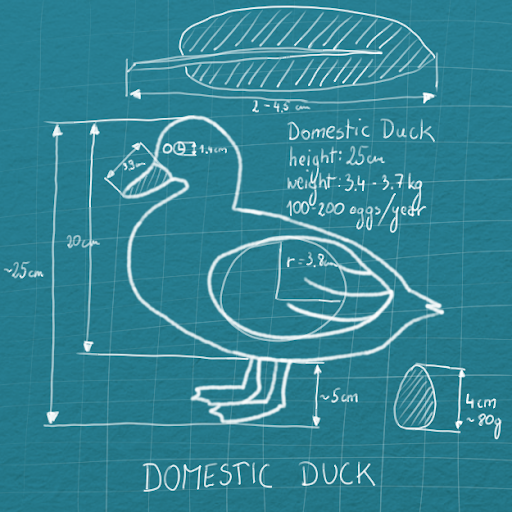 2 - 4,5 cm
Domestic Duck
height: 25cm
weight: 3,4 - 3,7 kg
100-200 eggs/year
1,4cm
3,3cm
20cm
~25cm
r = 3,8cm
~5cm
4cm
~80g
DOMESTIC DUCK